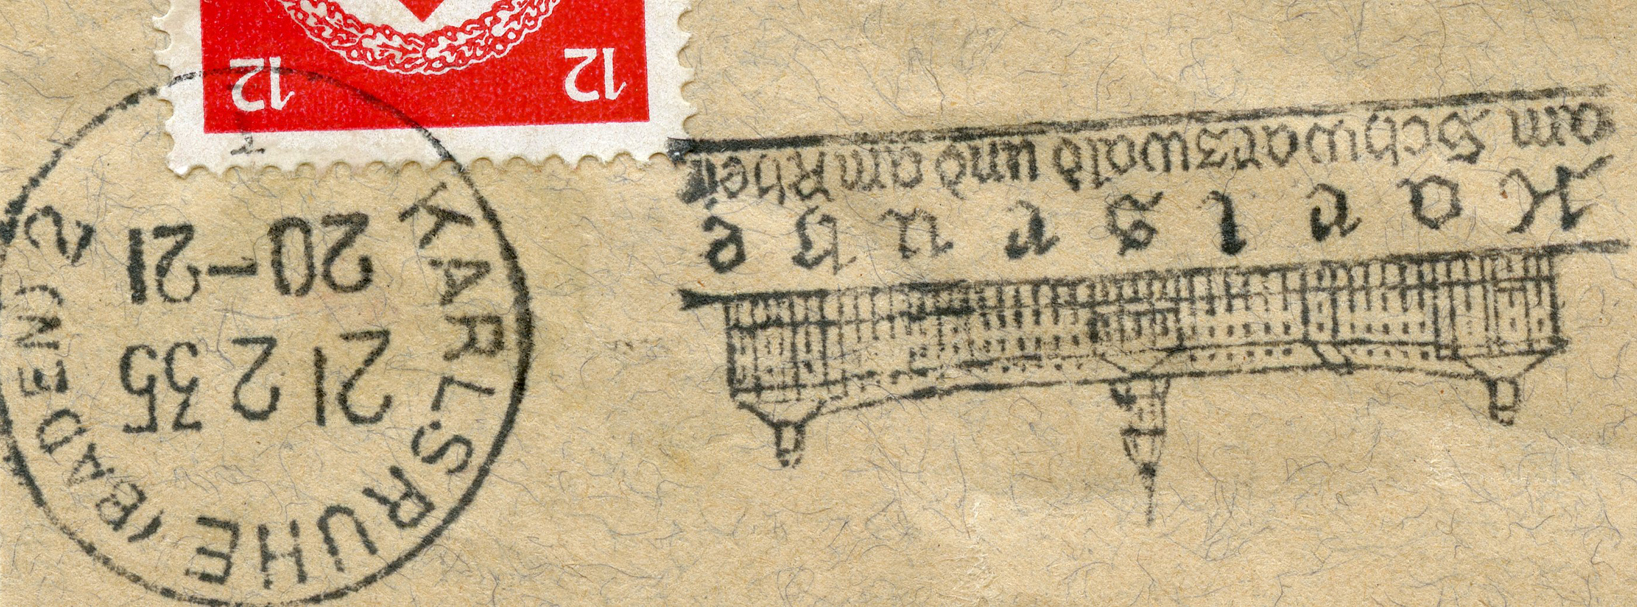 Karlsruhe
am Schwarzwald und am Rhein
KARLSRUHE (BADEN) 2
21 2 35
20-21
12 12